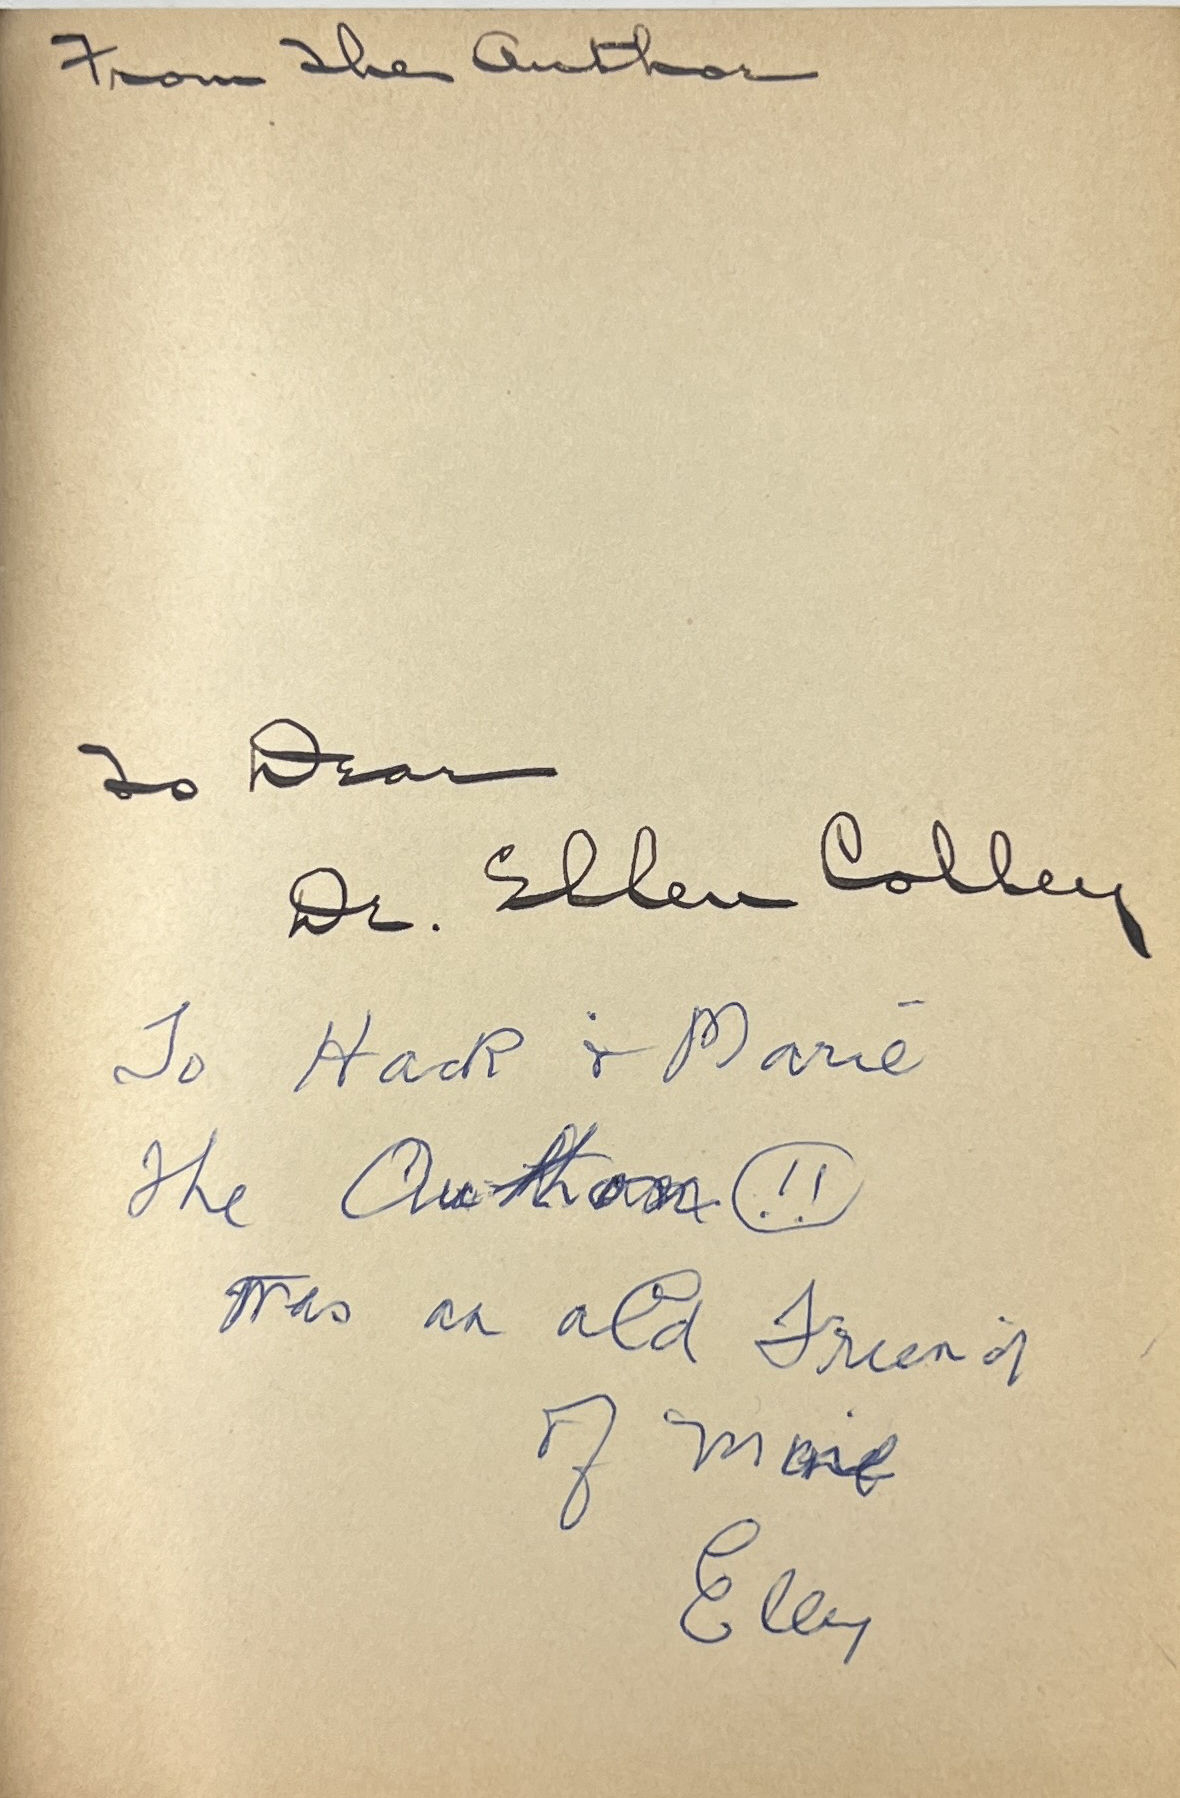 From The Author
To Dear
Dr. Ellen Colley
To Hack & Marie
The Author !!
was an old Friend
of mine
Elly